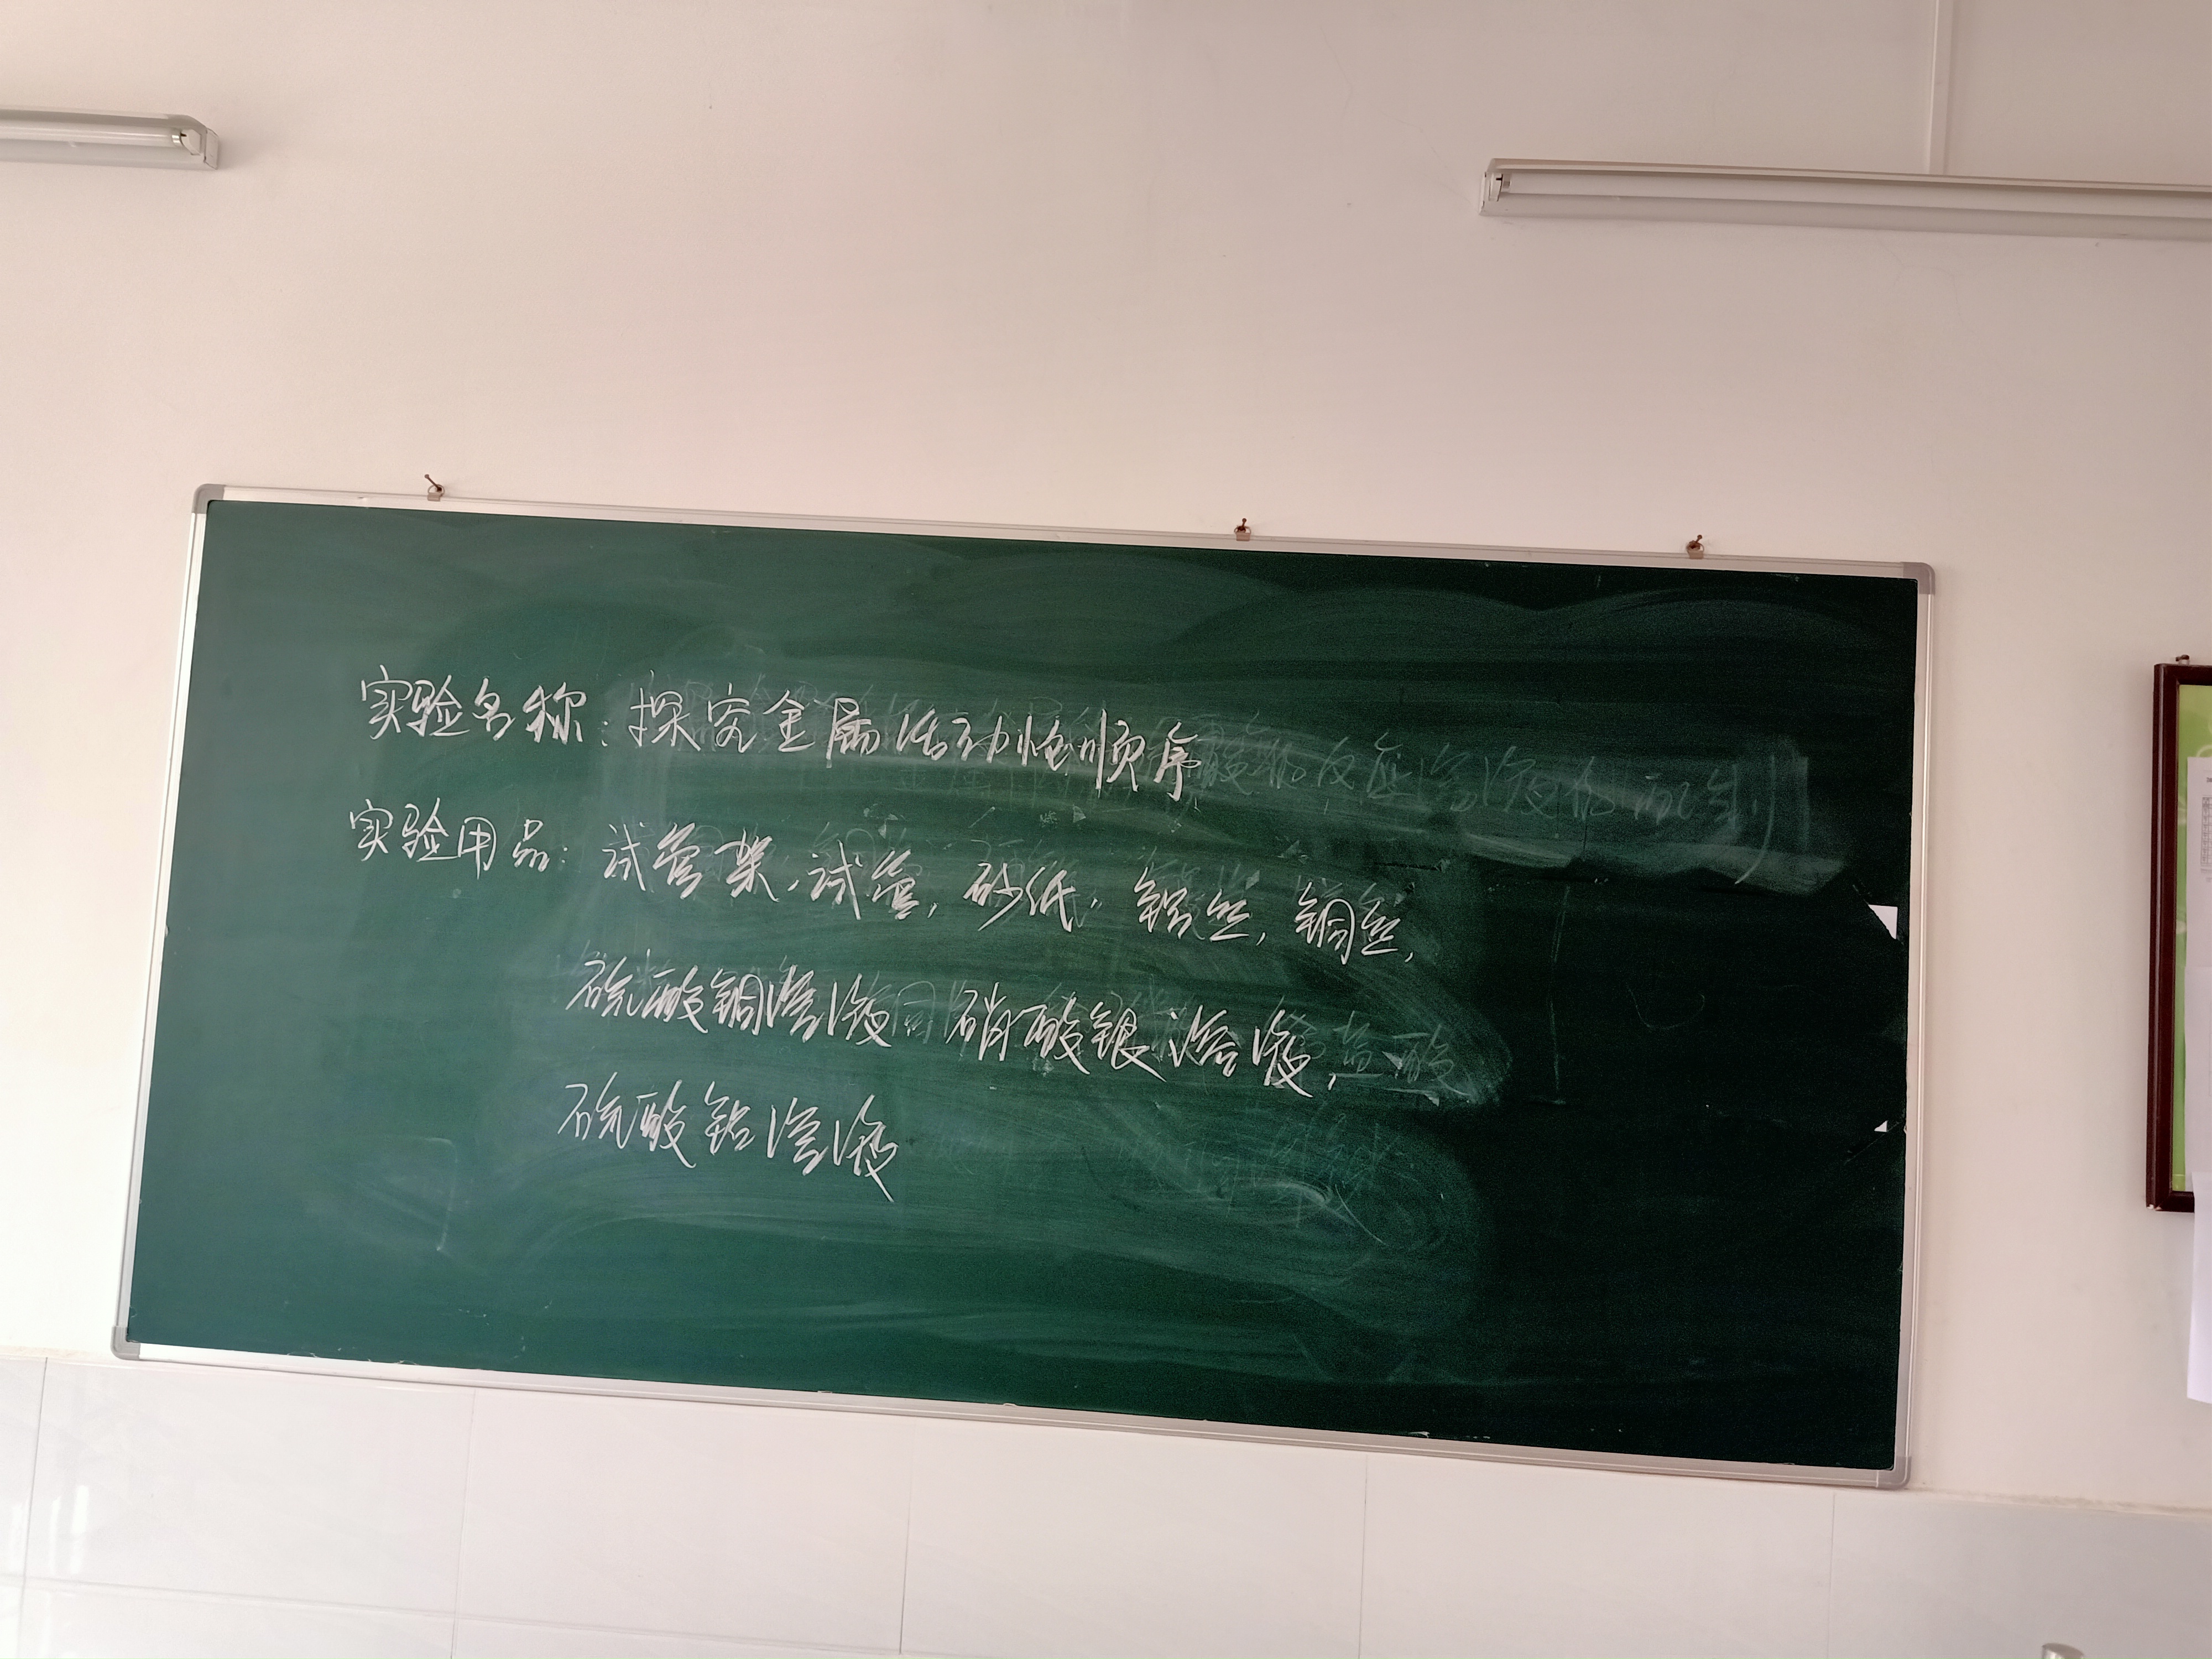 实验名称：探究金属活动性顺序
实验用品：试管架，试管，砂纸，铝丝，铜丝，
硫酸铜溶液 硝酸银溶液，
硫酸铝溶液